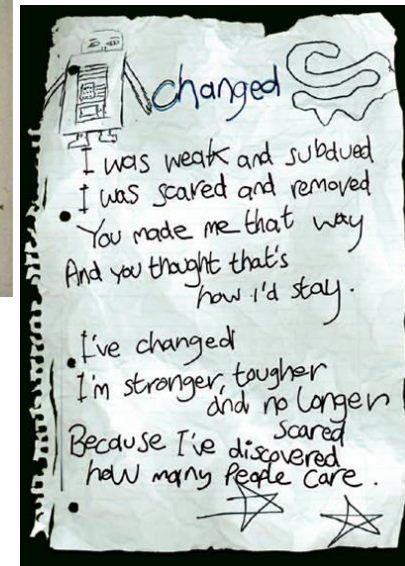 changed
I was weak and subdued
I was scared and removed
You made me that way
And you thought that's
how i'd stay.
I've changed
I'm stronger, tougher
and no longer
scared
Because I've discovered
how many people care.